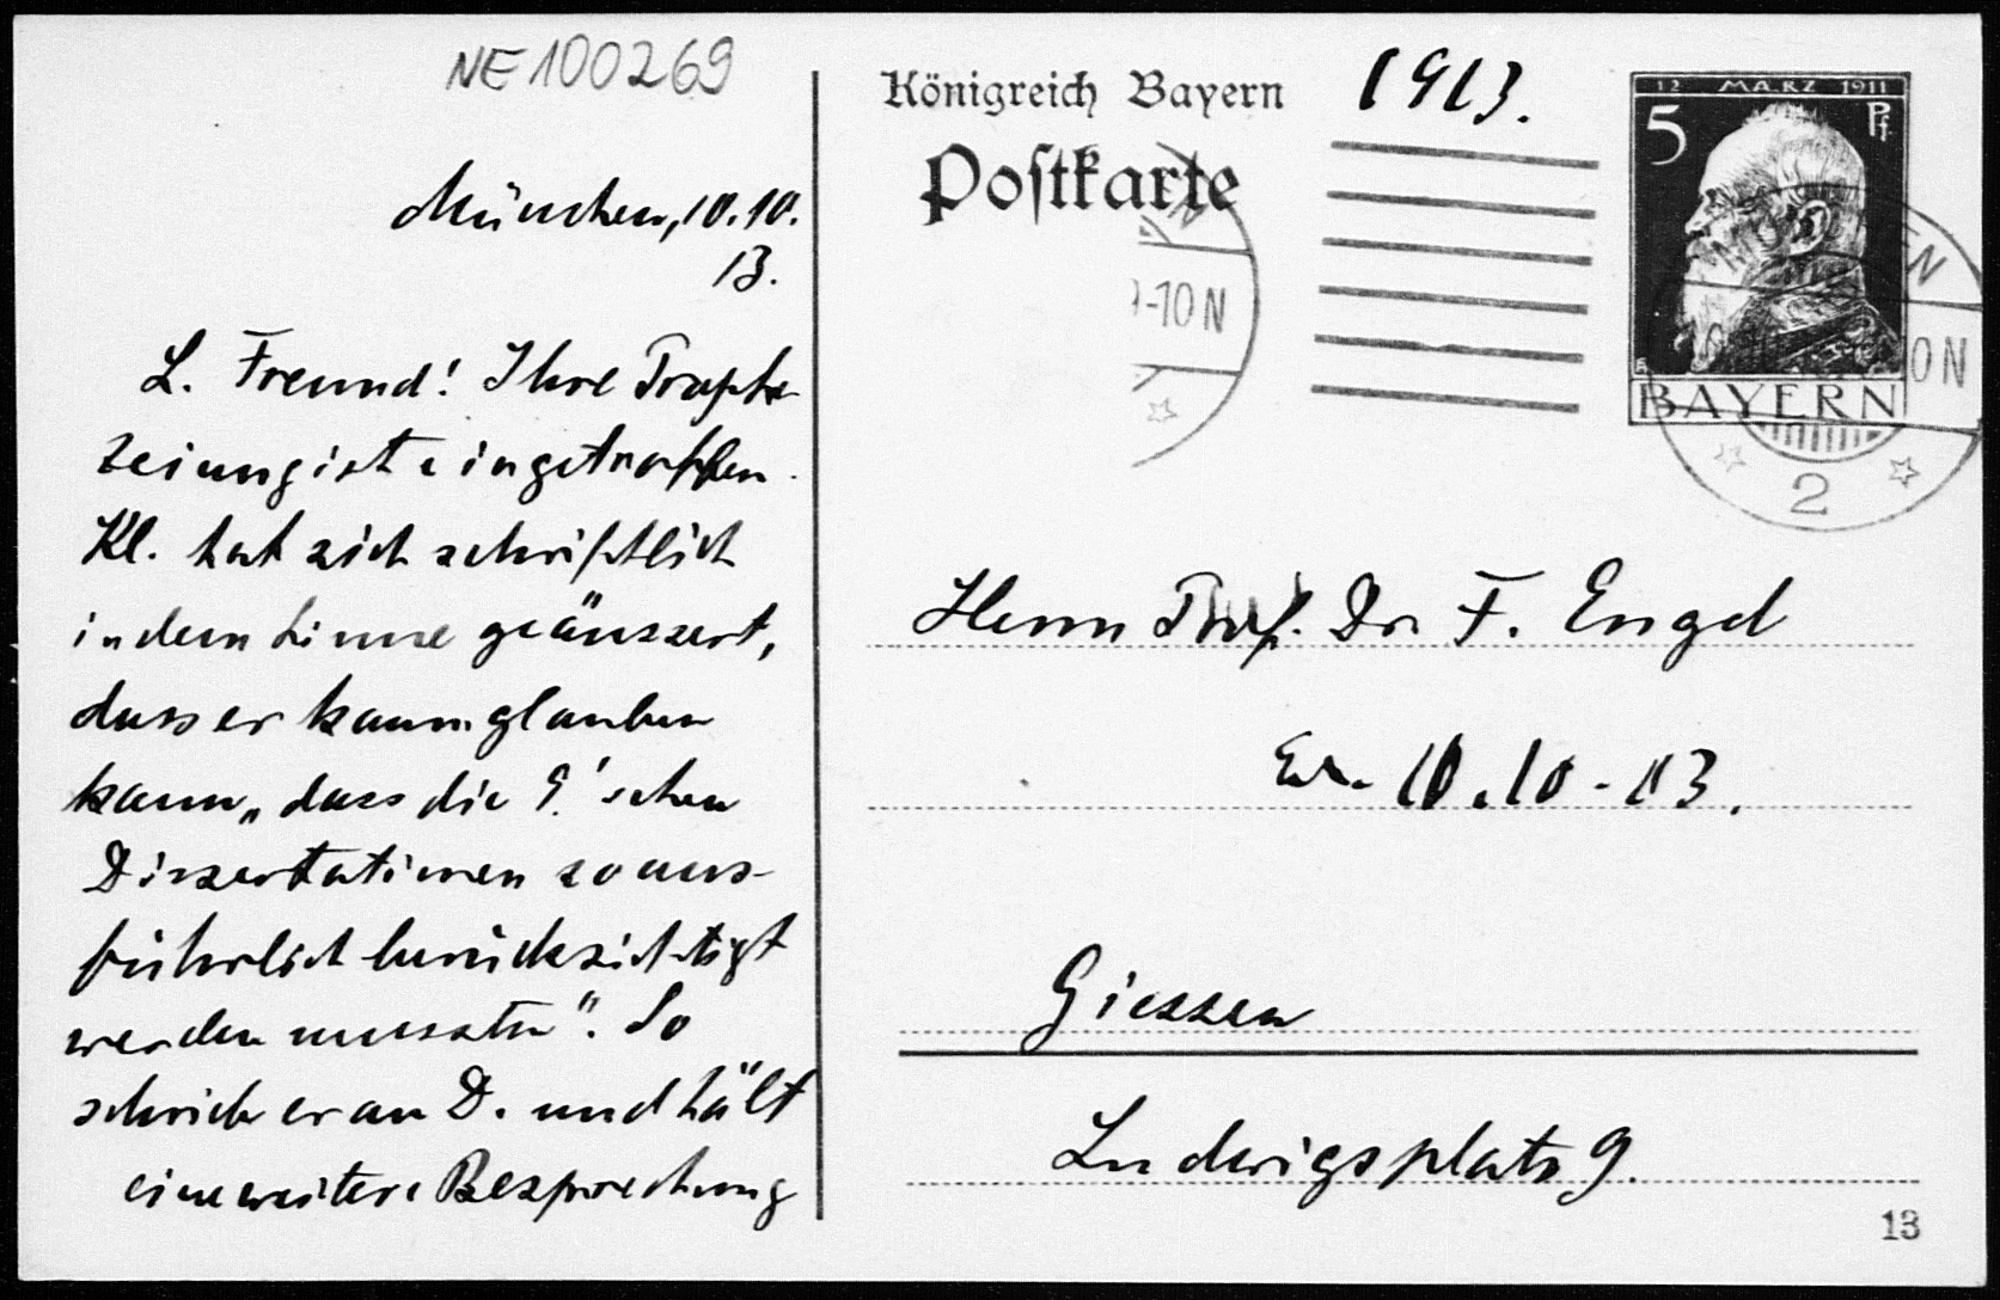 NE100269
München, 10.10.
13.
L. Freund! Ihre Prophe-
zeiung ist eingetroffen.
Kl. hat sich schriftlich
in dem Sinne geäussert,
dass er kaum glauben
kann, „dass die G.'schen
Dissertationen so aus-
führlich berücksichtigt
werden mussten“. So
schrieb er an D. und hält
eine weitere Besprechung
Königreich Bayern
1913.
Postkarte
12 MARZ 1911
5 Pf
BAYERN
-10 N
MÜNCHEN
0 N
2
Herrn Prof. Dr. F. Engel
10.10.13.
Giessen
Ludwigsplatz 9.
13